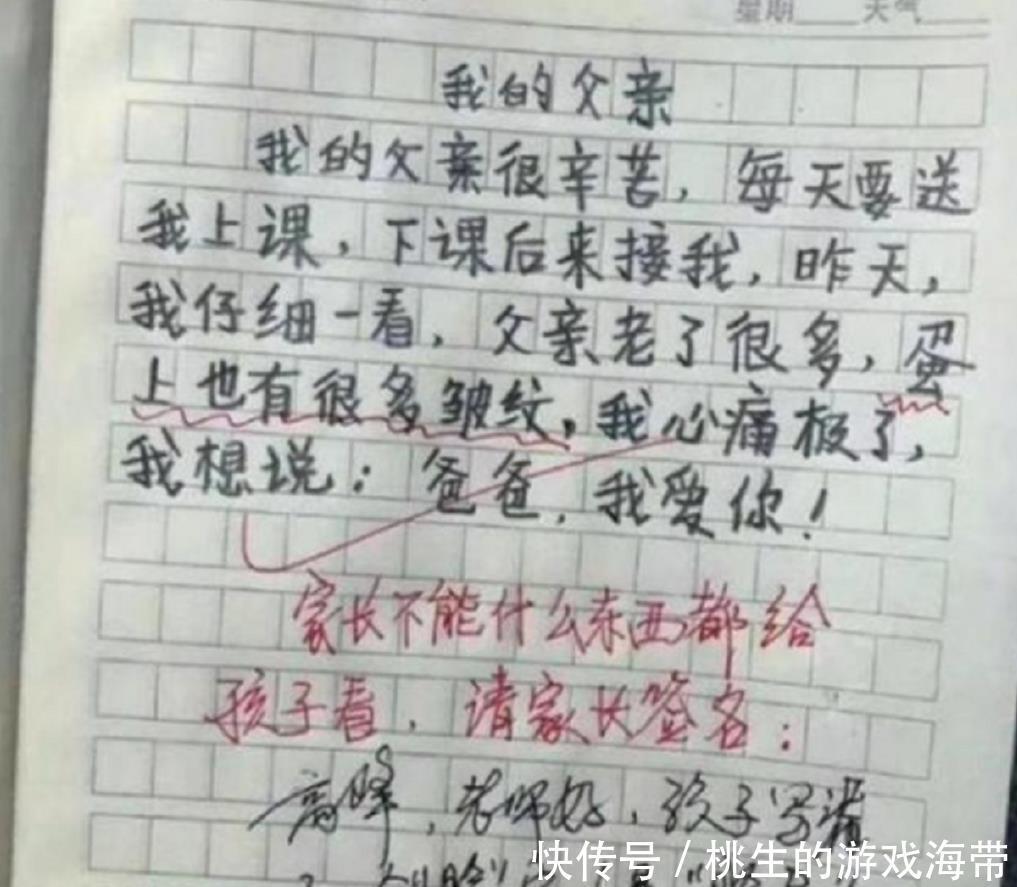 星期____天气____
我的父亲
我的父亲很辛苦，每天要送
我上课，下课后来接我，昨天，
我仔细一看，父亲老了很多，蛋
上也有很多皱纹，我心痛极了，
我想说：爸爸，我爱你！
家长不能什么东西都给
孩子看，请家长签名：
高峰，老师好，孩子写错
快传号 / 桃生的游戏海带